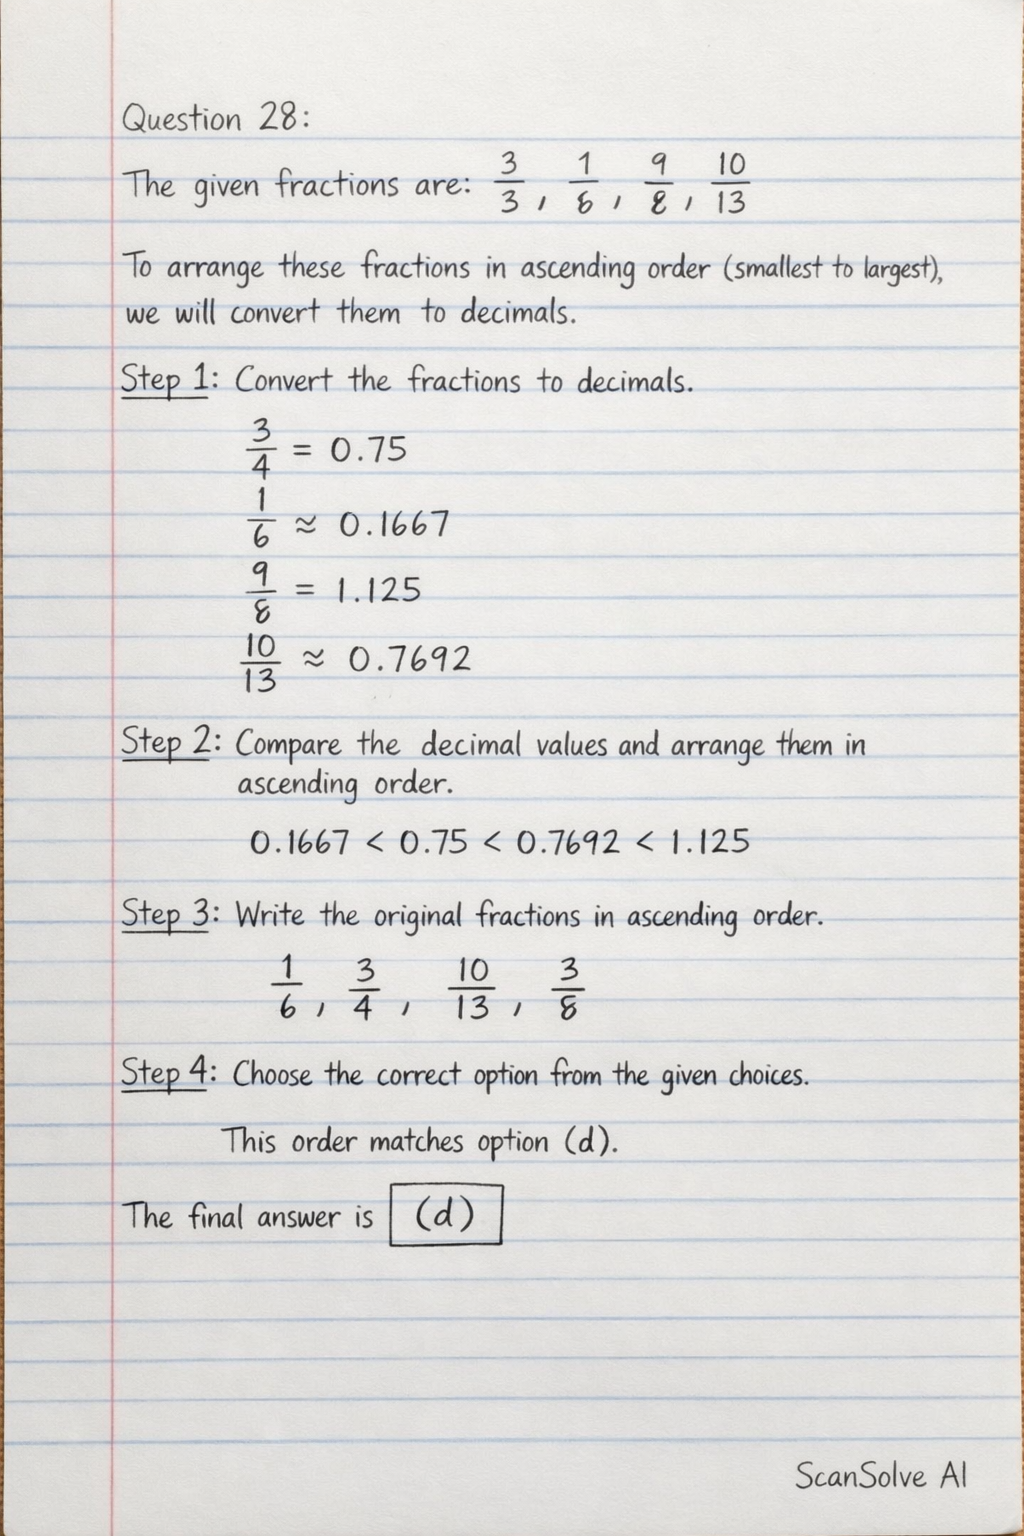 Question 28:
The given fractions are: 3/3, 1/6, 9/8, 10/13
To arrange these fractions in ascending order (smallest to largest),
we will convert them to decimals.
Step 1: Convert the fractions to decimals.
3/4 = 0.75
1/6 ≈ 0.1667
9/8 = 1.125
10/13 ≈ 0.7692
Step 2: Compare the decimal values and arrange them in
ascending order.
0.1667 < 0.75 < 0.7692 < 1.125
Step 3: Write the original fractions in ascending order.
1/6, 3/4, 10/13, 3/8
Step 4: Choose the correct option from the given choices.
This order matches option (d).
The final answer is (d)
ScanSolve AI